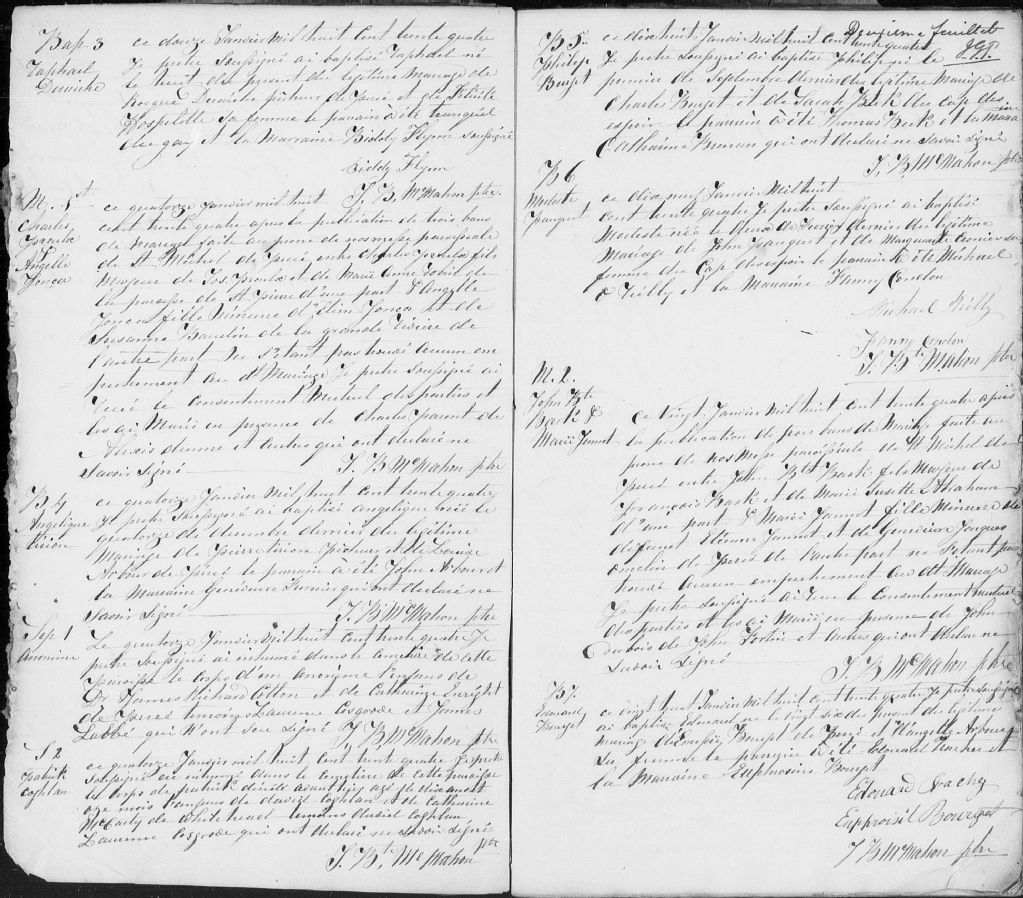 Bap. 3
Raphael
Deraiche
ce douze Janvier Mil huit cent trente quatre
Je pretre Soussigné ai baptisé Raphael né
le huit du present du légitime Mariage de
Rocque Deraiche pêcheur de Percé et de Felicité
Hospitelle Sa femme le parain a été
et la Marraine Biddy Flynn Soussigné
Biddy Flynn
J. B. McMahon ptre.
M. 1st
Charles
Proulx
&
Angelle
Jonca
ce quatorze Janvier mil huit
cent trente quatre apres la publication de trois bans
de mariage faite au prone de nos messe paroissiale
de St Michel de Percé entre Charles Proulx fils
Majeur de Jos. Proulx et de Marie Anne de
la paroisse de St Pierre d'une part & Angelle
Jonca fille Mineure d' Jonca et de
Susanne Baudin de la grande Riviere de
l'autre part Ne s'etant pas trouvé aucun em
pechement au dt Mariage Je pretre Soussigné ai
recu le consentement Mutuel des parties et
les ai Marié en presence de Charles parent de
Alexis et autres qui ont declaré ne
Savoir Signé
J. B. McMahon ptre
B 4
Angelique
Vision
ce quatorze Janvier Mil huit Cent trente quatre
Je pretre Soussigné ai baptisé angelique née le
quatorze de decembre dernier du légitime
Mariage de Pierre Pecheur et de Louise
Arbour de Percé le parain a été John Arbour et
la Marraine Genevieve qui ont declaré ne
Savoir Signé
J. B. McMahon ptre
Sep 1
Anonime
Le quatorze Janvier Mil huit Cent trente quatre Je
pretre Soussigné ai inhumé dans le cimetiere de cette
Paroisse le Corps d'un Anonyme Enfans de
Dr James Richard Cotton et de Catherine Enright
de Percé temoins Laurence Cosgrove et James
Labbé qui N'ont seu Signé J. B. McMahon ptre
S 2
Patrick
Coghlan
ce quatorze Janvier mil huit Cent trent quatre Je pretre
Soussigné ai inhumé dans le cimetiere de cette paroisse
le Corps de patrick décédé avant hier agé de dix ans et
onze mois Enfans de david Coghlan et de Catherine
McCarty de White head temoins david Coghlan,
Laurence Cosgrove qui ont declaré ne Savoir Signé
J. Bt. McMahon ptre
Deuxieme feuillet
B 5
Philipe
Bourget
ce dix huit Janvier Mil huit Cent trente quatre
Je pretre Soussigné ai baptisé Philipe né le
premier de Septembre dernier du legitime Mariage de
Charles Bourget et de Sarah Beck du Cap des
espoir le parain a été Thomas Beck et la Mara
ine
Catharine Brenan qui ont declaré ne Savoir Signé
J. B. McMahon ptre
B 6
Modeste
Bourget
ce dix neuf Janvier Mil huit
Cent trente quatre Je pretre Soussigné ai baptisé
Modeste née le du légitime
Mariage de John Bourguet et de Marguerite sa
femme du Cap despoir le parain a été Michael
Reilly et la Maraine Fanny Condon
Michael Reilly
Fanny Condon
J. Bt McMahon ptre
M. 2.
John Bte
Bask &
Marie Jannot
ce vingt Janvier Mil huit cent trente quatre après
la publication de trois bans de Mariage faite au
prone de nos Messe paroissiale de St Michel de
Percé entre John Bt Bask fils Majeur de
François Bask et de Marie Susette Abraham
d'une part & Marie Jannot fille Mineure de
défunt Etienne Jannot et de Genevieve Jacques
de Percé de l'autre part ne s'etant pas
trouvé aucun empechement au dt Mariage
Je pretre Soussigné ai recu le consentement mutuel
des parties et les ai Marié en presence de John
dubois de John Fortin et autres qui ont declaré ne
Savoir Signé
J. B. McMahon ptre
B 7.
Edouard
Bourget
ce vingt huit Janvier Mil huit cent trente quatre Je pretre Soussigné
ai baptisé Edouard né le vingt six du present du légitimes
Mariage de Bourget de Percé et d'Angelle Arbour
Sa femme le parain a été Edouard et
la Maraine Euphrosine Bourget
Edouard
Euphrosie Bourget
J B McMahon ptre